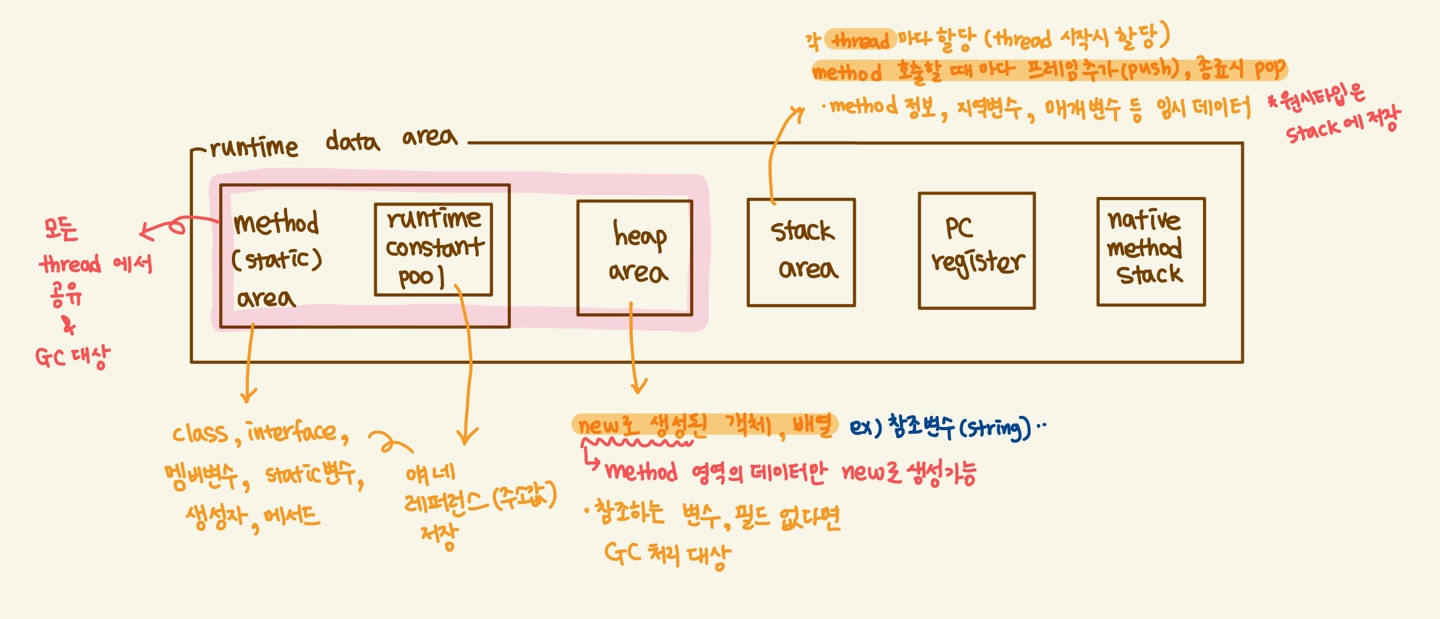 각 thread 마다 할당 (thread 시작시 할당)
method 호출할 때 마다 프레임추가(push), 종료시 pop
· method 정보, 지역변수, 매개변수 등 임시 데이터
*원시타입은
stack에 저장
runtime data area
method
(static)
area
runtime
constant
pool
heap
area
stack
area
PC
register
native
method
stack
모든
thread 에서
공유
&
GC 대상
class, interface,
멤버변수, static변수,
생성자, 메서드
얘네
레퍼런스 (주소값)
저장
new로 생성된 객체, 배열 ex) 참조변수(string)··
method 영역의 데이터만 new로 생성가능
· 참조하는 변수, 필드 없다면
GC 처리 대상